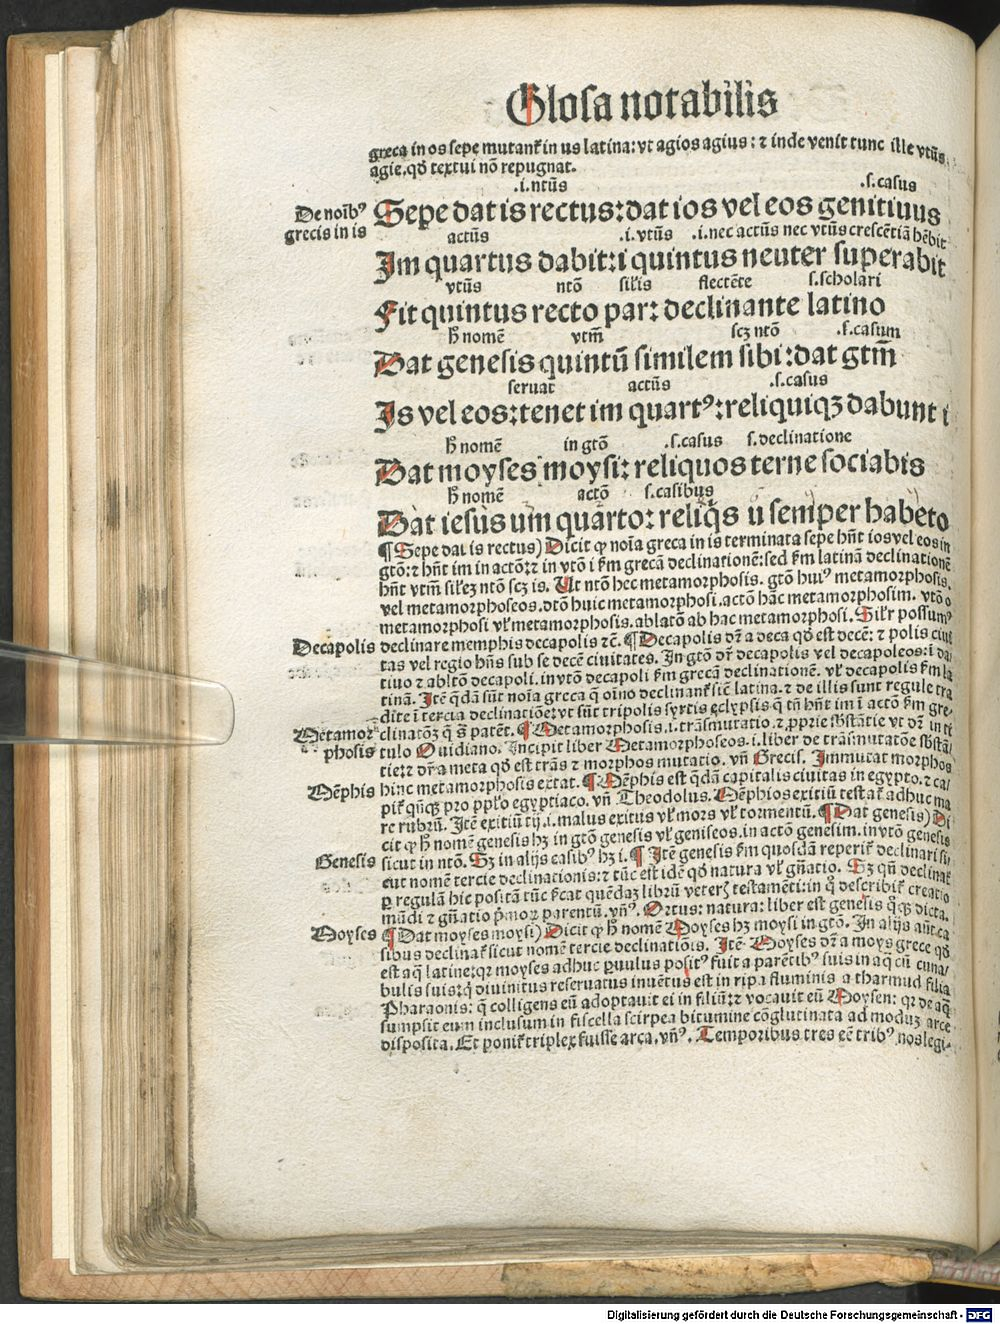 Glosa notabilis
greca in os sepe mutant̃ in us latina: vt agios agius: ⁊ inde venit tunc ille vtũs
agie. qđ textui nõ repugnat.
.i. ntũs .s. casus
De noĩbꝰ
grecis in is
Sepe dat is rectus: dat ios vel eos genitiuus
actũs .i. vtũs .i. nec actũs nec vtũs crescẽtiã hẽbit
Im quartus dabit: i quintus neuter superabit
vtũs ntõ sil̃is flectẽte s. scholari
Fit quintus recto par: declinante latino
h̃ nomẽ vtm̃ scꝫ ntõ .s. casum
Dat genesis quintũ similem sibi: dat gtm̃
seruat actũs .s. casus
Is vel eos: tenet im quartꝰ: reliquiqꝫ dabunt i
h̃ nomẽ in gtõ .s. casus s. declinatione
Dat moyses moysi: reliquos terne sociabis
h̃ nomẽ actõ s. casibus
Dat iesus um quarto: reliq̃s u semper habeto
¶ Sepe dat is rectus) Dicit ꝙ noĩa greca in is terminata sepe hñt ios vel eos in
gtõ: ⁊ hñt im in actõ: ⁊ in vtõ i s̃m grecã declinationẽ: sed s̃m latinã declinationẽ
hñt vtm̃ sil̃eꝫ ntõ scꝫ is. Ut ntõ hec metamorphosis. gtõ huiꝰ metamorphosis.
vel metamorphoseos. dtõ huic metamorphosi. actõ hãc metamorphosim. vtõ o
metamorphosi vl̃ metamorphosis. ablatõ ab hac metamorphosi. Sil̃r possumꝰ
Decapolis declinare memphis decapolis ⁊c̃. ¶ Decapolis dr̃ a deca qđ est decẽ: ⁊ polis ciui
tas vel regio hñs sub se decẽ ciuitates. In gtõ dr̃ decapolis vel decapoleos: i da
tiuo ⁊ abltõ decapoli. in vtõ decapoli s̃m grecã declinationẽ. vl̃ decapolis s̃m la
tinã. Itẽ q̃dã sũt noĩa greca q̃ oĩno declinant̃ sicẽ latina. ⁊ de illis sunt regule tra
dite ĩ tercia declinatiõe: vt sũt tripolis syrtis eclypsis q̃ tñ hñt im ĩ actõ s̃m gre-
Metamor
phosis
clinatõꝫ q̃ s̃ patẽt. ¶ Metamorphosis. i. trãsmutatio. ⁊ ꝓprie sb̃stãtie vt dr̃ in ti
tulo Ouidiano. Incipit liber Metamorphoseos. i. liber de trãsmutatõe sb̃stã/
tie: ⁊ dr̃ a meta qđ est trãs ⁊ morphos mutatio. vñ Grecis. Immutat morphos
Mẽphis hinc metamorphosis extat. ¶ Mẽphis est q̃dã capitalis ciuitas in egypto. ⁊ ca/
pit̃ qñqꝫ pro ppl̃o egyptiaco. vñ Theodolus. Mẽphios exitiũ testat̃ adhuc ma
re rubrũ. Itẽ exitiũ tij. i. malus exitus vl̃ mors vl̃ tormentũ. ¶ Dat genesis) Di
cit ꝙ h̃ nomẽ genesis hꝫ in gtõ genesis vl̃ geniseos. in actõ genesim. in vtõ genesis
Genesis sicut in ntõ. Sꝫ in alijs casibꝰ hꝫ i. ¶ Itẽ genesis s̃m quosdã reperit̃ declinari si
cut nomẽ tercie declinationis: ⁊ tũc est idẽ qđ natura vl̃ gñatio. Sꝫ qñ declinat̃
ꝑ regulã hic positã tũc s̃cat quẽdaꝫ librũ veterꝫ testamẽti: in q̃ describit̃ creatio
mũdi ⁊ gñatio p̃moꝝ parentũ. vñꝰ. Ortus: natura: liber est genesis q̃qꝫ dicta.
Moyses ¶ Dat moyses moysi) Dicit ꝙ h̃ nomẽ Moyses hꝫ moysi in gtõ. In alijs aũt ca
sibus declinat̃ sicut nomẽ tercie declinatiõis. Itẽ Moyses dr̃ a moys grece qđ
est aq̃ latine: qꝛ moyses adhuc ꝑuulus positꝰ fuit a parẽtibꝰ suis in aq̃ cũ cuna/
bulis suis: q̃ diuinitus reseruatus inuẽtus est in ripa fluminis a tharmud filia
Pharaonis: q̃ colligens eũ adoptauit ei in filiũ: ⁊ vocauit eũ Moysen: qꝛ de aq̃
sumpsit eum inclusum in fiscella scirpea bitumine cõglutinata ad moduꝫ arce
disposita. Et ponit̃ triplex fuisse arca. vñꝰ. Temporibus tres eẽ tribꝰ nos legi-
Digitalisierung gefördert durch die Deutsche Forschungsgemeinschaft - DFG